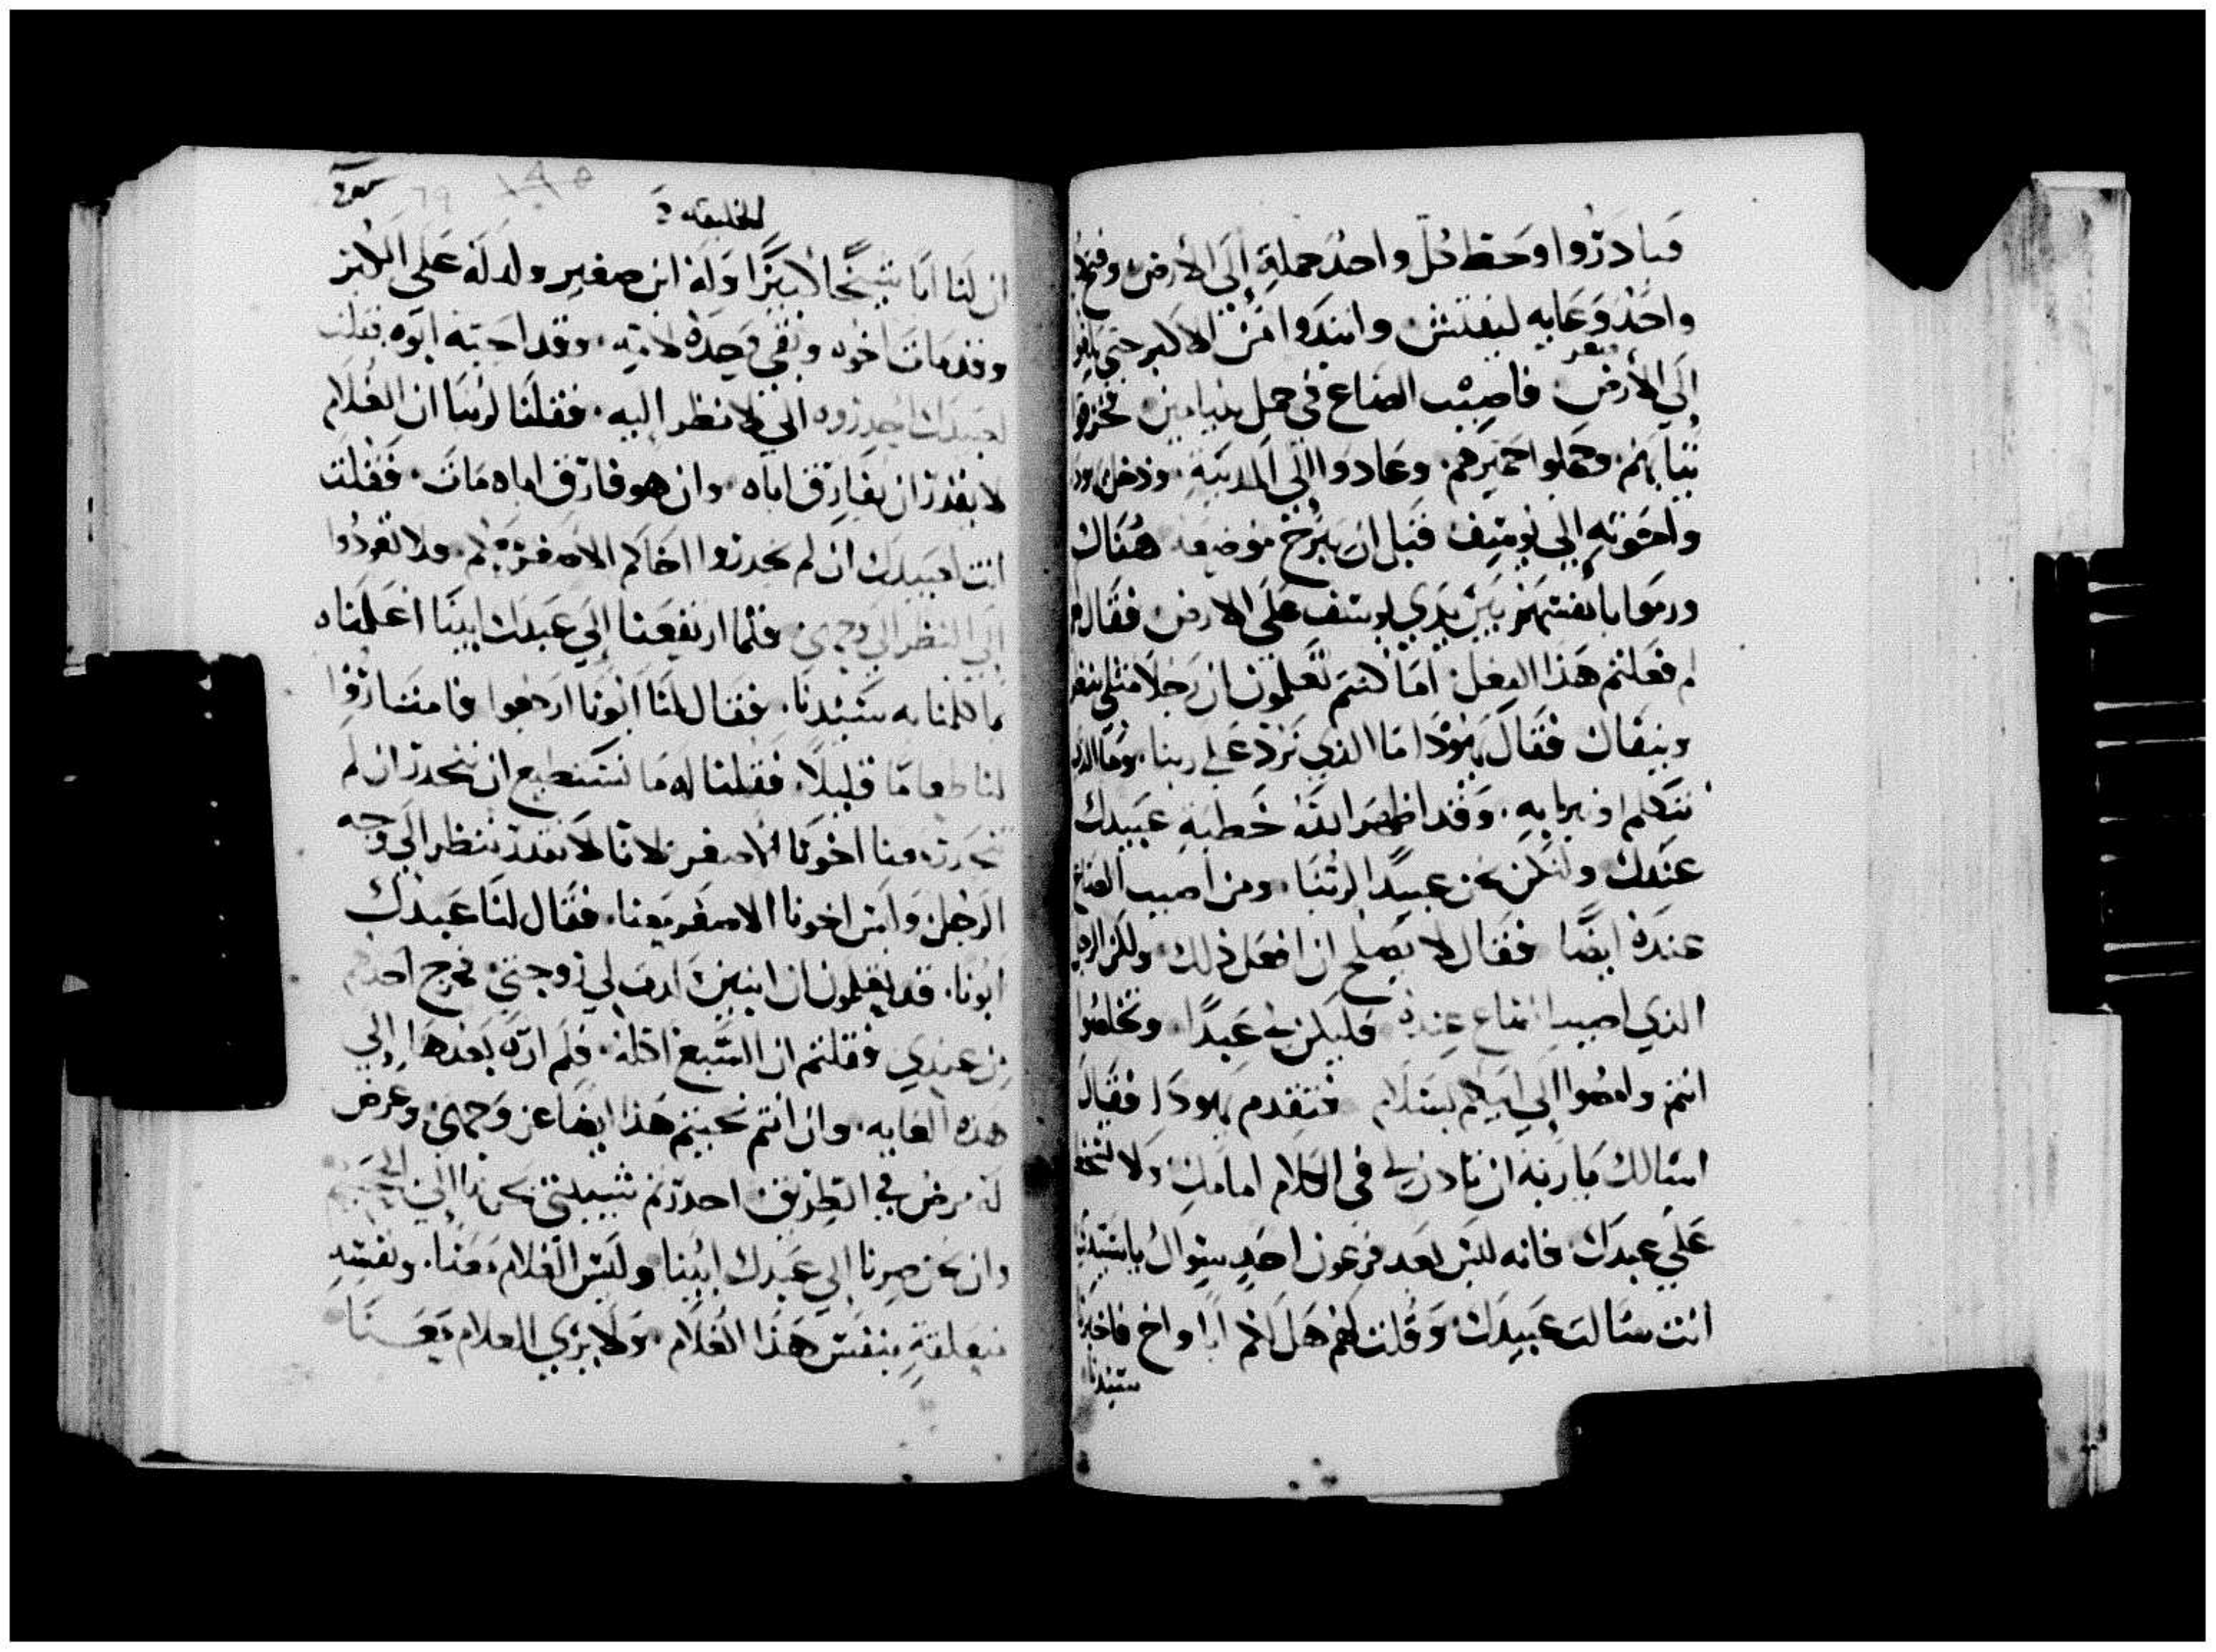 فبادروا وحط كل واحد حمله إلى الأرض وفتح
واحد وعايه ليفتش وابتدوا من الاكبر حتى بلغوا
إلى الأصغر فاصيب الصاع في حمل بنيامين فخزقوا
ثيابهم وحملوا حميرهم وعادوا الى المدينة ودخل يهودا
واخوته إلى يوسف قبل ان يبرح موضعه هناك
ورموا بانفسهم بين يدي يوسف على الارض فقال
لم فعلتم هذا الفعل اما كنتم تعلمون ان رجلا مثلي يتفال
وينقاك فقال يهودا ما الذي نرد على ربنا وما الذي
نتكلم او نجيب به وقد اظهر الله خطية عبيدك
عندك ولنكن نحن عبيدا لربنا ومن اصيب الصاع
عنده ايضا فقال لا يصلح ان افعل ذلك ولكن الرجل
الذي اصيب الصاع عنده فليكن لي عبدا وتخلصوا
انتم وامضوا الي ابيكم بسلام فتقدم يهودا فقال
اسالك يا ربه ان تاذن لي في الكلام امامك ولا تسخط
علي عبدك فانه ليس بعد فرعون احد سواك يا سيدنا
انت سالت عبيدك وقلت لهم هل لكم ابا واخ فاخبرنا
سيدنا
الخليقة
ان لنا ابا شيخا كبيرا وله ابن صغير ولد له على الكبر
وقد مات اخوه وبقي وحده لامه وقد احبه ابوه فقلت
لعبيدك احدروه الي لانظر اليه فقلنا لربنا ان الغلام
لا يقدر ان يفارق اباه وان هو فارق اباه مات فقلت
انت لعبيدك ان لم يحدروا اخاكم الاصغر معكم فلا تعودوا
الى النظر الي وجهي فلما ارتفعنا إلى عبدك ابينا اعلمناه
ما كلمنا به سيدنا فقال لنا ابونا ارجعوا فامتاروا
لنا طعاما قليلا فقلنا له ما نستطيع ان ننحدر ان لم
ينحدر معنا اخونا الاصغر لانا لا نقدر ننظر الي وجه
الرجل وليس اخونا الاصغر معنا فقال لنا عبدك
ابونا قد تعلمون ان ابنين ولدت لي زوجتي فخرج احدهم
من عندي فقلتم ان السبع اكله فلم اره بعدها إلى
هذه الغايه وان انتم نحيتم هذا ايضا عن وجهي وعرض
له مرض في الطريق احدرتم شيبتي بحزن الى الجحيم
وان نحن صرنا الى عبدك ابينا وليس الغلام معنا ونفسه
متعلقة بنفس هذا الغلام ولا يرى الغلام معنا